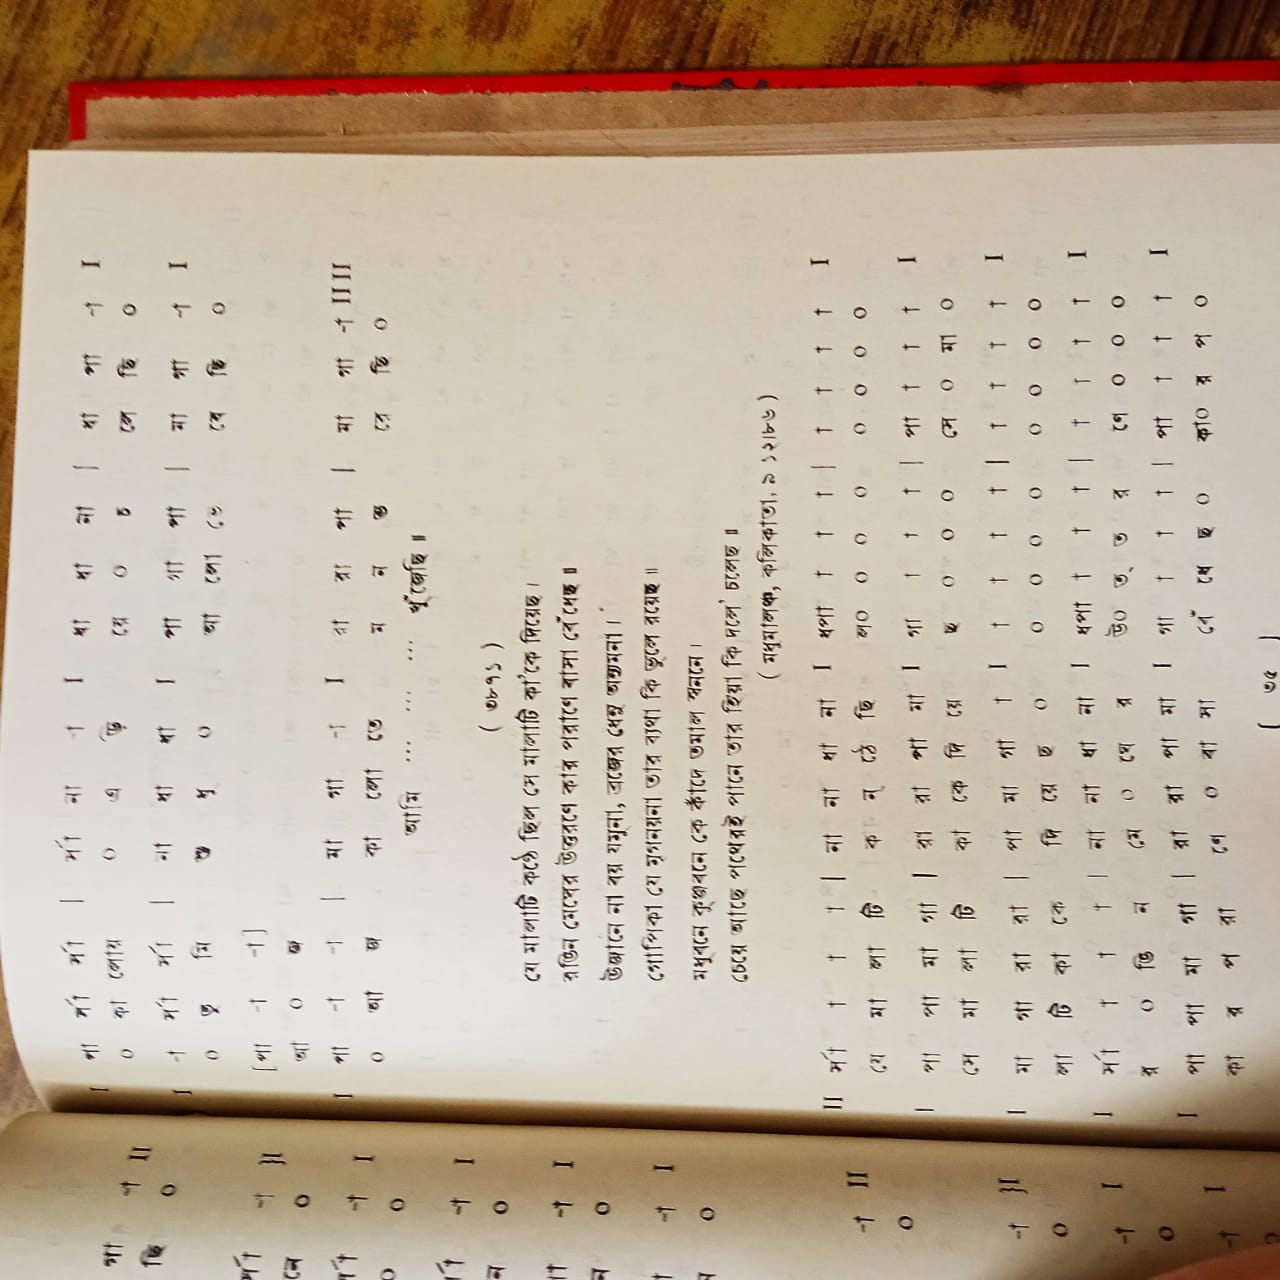 I পা র্সা র্সা র্সা | র্সা না -া I ধা ধা না | ধা পা -া I
০ কা লোয় ০ এ ড়ি য়ে ০ চ লে ছি ০
I -া র্সা র্সা | না ধা ধা I পা গা পা | মা পা -া I
০ তু মি শু ধু ০ আ লো তে রে ছি ০
[পা -া -া]
আ ০ জ
I পা -া -া | মা গা -া I গা রা পা | মা পা -া II II
০ আ জ কা লো তে ম ন ভ রে ছি ০
আমি ... ... ... খুঁজেছি ॥
( ৩৮৭১ )
যে মালাটি কণ্ঠে ছিল সে মালাটি কা'কে দিয়েছ ।
রঙিন মেঘের উত্তরণে কার পরাণে বাসা বেঁধেছ ॥
উজানে না বয় যমুনা, বক্ষের মেঘ অন্তমনা ।
গোপিকা যে মৃগনয়না তার ব্যথা কি ভুলে রয়েছ ॥
মধুবনে কুঞ্জবনে কে কাঁদে তমাল স্বননে ।
চেয়ে আছে পথেরই পানে তার হিয়া কি দলে' চলেছ ॥
( মধুমালঞ্চ, কলিকাতা, ৯ ১২।৮৬ )
II র্সা া া া | না না ধা না I ধপা া া া | া া া া I
যে মা লা টি ক ন্ ঠে ছি ল০ ০ ০ ০ ০ ০ ০ ০
I পা পা মা গা | রা রা পা মা I গা া া া | পা া া া I
সে মা লা টি কা কে দি য়ে ছ ০ ০ ০ সে ০ মা ০
I মা গা রা রা | পা মা গা া I া া া া | া া া া I
লা টি কা কে দি য়ে ছ ০ ০ ০ ০ ০ ০ ০ ০ ০
I র্সা া া া | না না ধা না I ধপা া া া | া া া া I
র ০ ঙি ন মে ০ ঘে র উ০ ত্ ত র ণে ০ ০ ০
I পা পা মা গা | রা রা পা মা I গা া া া | পা া া া I
কা র প রা ণে ০ বা সা বেঁ ধে ছ ০ কা০ র প ০
[ ৩৫ ]
পা -া II
ছি ০
র্সা -া }I
নে ০
র্সা -া I
০ ০
র্সা -া I
ন ০
-া I
ন ০
-া I
ন ০
-া II
০
-া }I
০
-া I
০
-া I